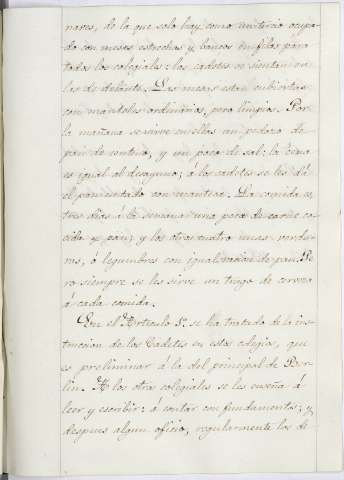 nares, de la que solo hay como un tercio ocupa-
do con mesas estrechas y bancos en filas para
todos los colegiales: los cadetes se sientan en
las de delante. Las mesas estan cubiertas
con manteles ordinarios, pero limpios. Por
la mañana se sirve en ellas un pedazo de
pan de centeno, y un poco de sal; la cena
es igual al desayuno; á los cadetes se les dá
el pan untado con manteca. La comida es,
tres dias á la semana una poca de carne co-
cida y pan; y los otros quatro unas verdu-
ras, ó legumbres con igual racion de pan. Pe-
ro siempre se les sirve un trago de cerveza
á cada comida.
En el Articulo 5º. se ha tratado de la ins-
truccion de los Cadetes en estos colegios, que
es preliminar á la del principal de Ber-
lin. A los otros colegiales se les enseña á
leer y escribir: á contar con fundamentos; y
despues algun oficio, regularmente los de